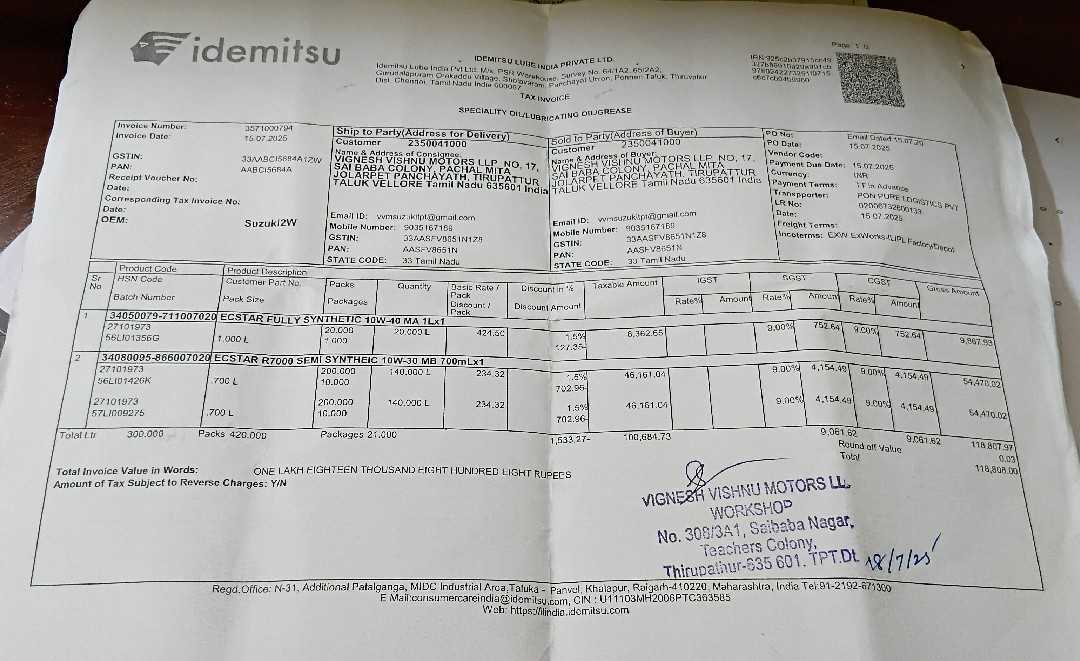 idemitsu
IDEMITSU LUBE INDIA PRIVATE LTD.
Idemitsu Lube India Pvt Ltd. M/s. PSR Warehouse, Survey No. 64/1A2, 65/2A2,
Gurudalapuram Orakaddu Village, Sholavaram, Panchayat Union, Ponneri Taluk, Thiruvallur
Dist. Chennai, Tamil Nadu India 600067
TAX INVOICE
SPECIALITY OIL/LUBRICATING OIL/GREASE
Invoice Number: 3571000794
Invoice Date: 15.07.2025
GSTIN: 33AABCI5684A1ZW
PAN: AABCI5684A
Receipt Voucher No:
Date:
Corresponding Tax Invoice No:
Date:
OEM: Suzuki2W
Ship to Party(Address for Delivery)
Customer 2350041000
Name & Address of Consignee:
VIGNESH VISHNU MOTORS LLP NO, 17,
SAI BABA COLONY, PACHAL MITA
JOLARPET PANCHAYATH, TIRUPATTUR
TALUK VELLORE Tamil Nadu 635601 India
Email ID: vvmsuzukitpt@gmail.com
Mobile Number: 9035167169
GSTIN: 33AASFV8651N1Z8
PAN: AASFV8651N
STATE CODE: 33 Tamil Nadu
Sold to Party(Address of Buyer)
Customer 2350041000
Name & Address of Buyer:
VIGNESH VISHNU MOTORS LLP NO, 17,
SAI BABA COLONY, PACHAL MITA
JOLARPET PANCHAYATH, TIRUPATTUR
TALUK VELLORE Tamil Nadu 635601 India
Email ID: vvmsuzukitpt@gmail.com
Mobile Number: 9035167169
GSTIN: 33AASFV8651N1Z8
PAN: AASFV8651N
STATE CODE: 33 Tamil Nadu
PO No: Email Dated 15.07.25
PO Date: 15.07.2025
Vendor Code:
Payment Due Date: 15.07.2025
Currency: INR
Payment Terms: in Advance
Transpporter: PON PURE LOGISTICS PVT
LR No:
Date: 15.07.2025
Freight Terms:
Incoterms: EXW ExWorks-ILIPL Factory/Depot
Sr No Product Code HSN Code Batch Number Product Description Customer Part No. Pack Size Packs Packages Quantity Basic Rate / Pack Discount / Pack Discount in % Discount Amount Taxable Amount IGST Rate% Amount SGST Rate% Amount CGST Rate% Amount Gross Amount
1 34050079-711007020 ECSTAR FULLY SYNTHETIC 10W-40 MA 1Lx1
27101973 20.000 20.000 L 424.50 1.5% 8,362.65 9.00% 752.64 9.00% 752.64 9,867.93
56LI01356G 1.000 L 1.000 127.35-
2 34080095-866007020 ECSTAR R7000 SEMI SYNTHEIC 10W-30 MB 700mLx1
27101973 200.000 140.000 L 234.32 1.5% 46,161.04 9.00% 4,154.49 9.00% 4,154.49 54,470.02
56LI01426K .700 L 10.000 702.96-
27101973 200.000 140.000 L 234.32 1.5% 46,161.04 9.00% 4,154.49 9.00% 4,154.49 54,470.02
57LI009275 .700 L 10.000 702.96-
Total Ltr 300.000 Packs 420.000 Packages 21.000 1,533.27- 100,684.73 9,061.62 9,061.62 118,807.97
Round off Value 0.03
Total 118,808.00
Total Invoice Value in Words: ONE LAKH EIGHTEEN THOUSAND EIGHT HUNDRED EIGHT RUPEES
Amount of Tax Subject to Reverse Charges: Y/N
VIGNESH VISHNU MOTORS LL.
WORKSHOP
No. 308/3A1, Saibaba Nagar,
Teachers Colony,
Thirupathur-635 601. TPT.Dt.
18/7/25
Regd.Office: N-31, Additional Patalganga, MIDC Industrial Area,Taluka - Panvel, Khalapur, Raigarh-410220, Maharashtra, India Tel:91-2192-671300
E Mail:consumercareindia@idemitsu.com, CIN : U11103MH2006PTC363585
Web: https://ilindia.idemitsu.com